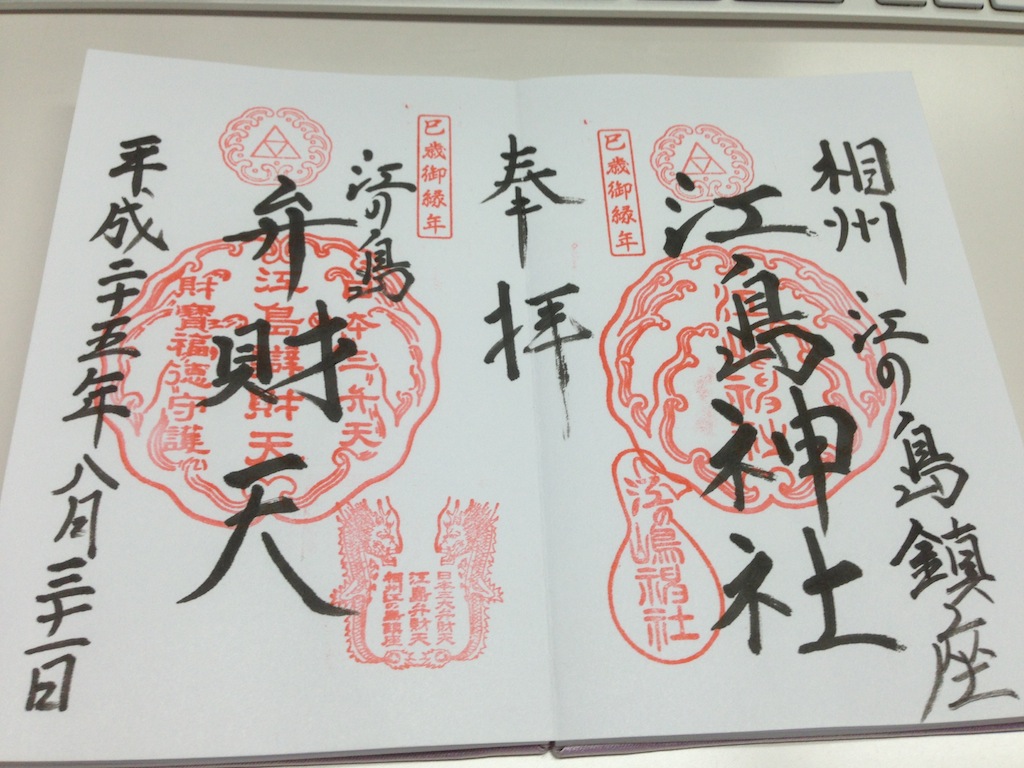 相州 江の島鎮座
江島神社
巳歳御縁年
江の嶋神社
奉拝
巳歳御縁年
江の島
弁財天
日本三弁天
江島辯財天
財寶福徳守護
日本三大弁財天
江島弁財天
相州江の島鎮座
平成二十五年八月三十一日